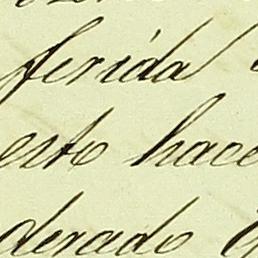 ferida
esto hace
derado